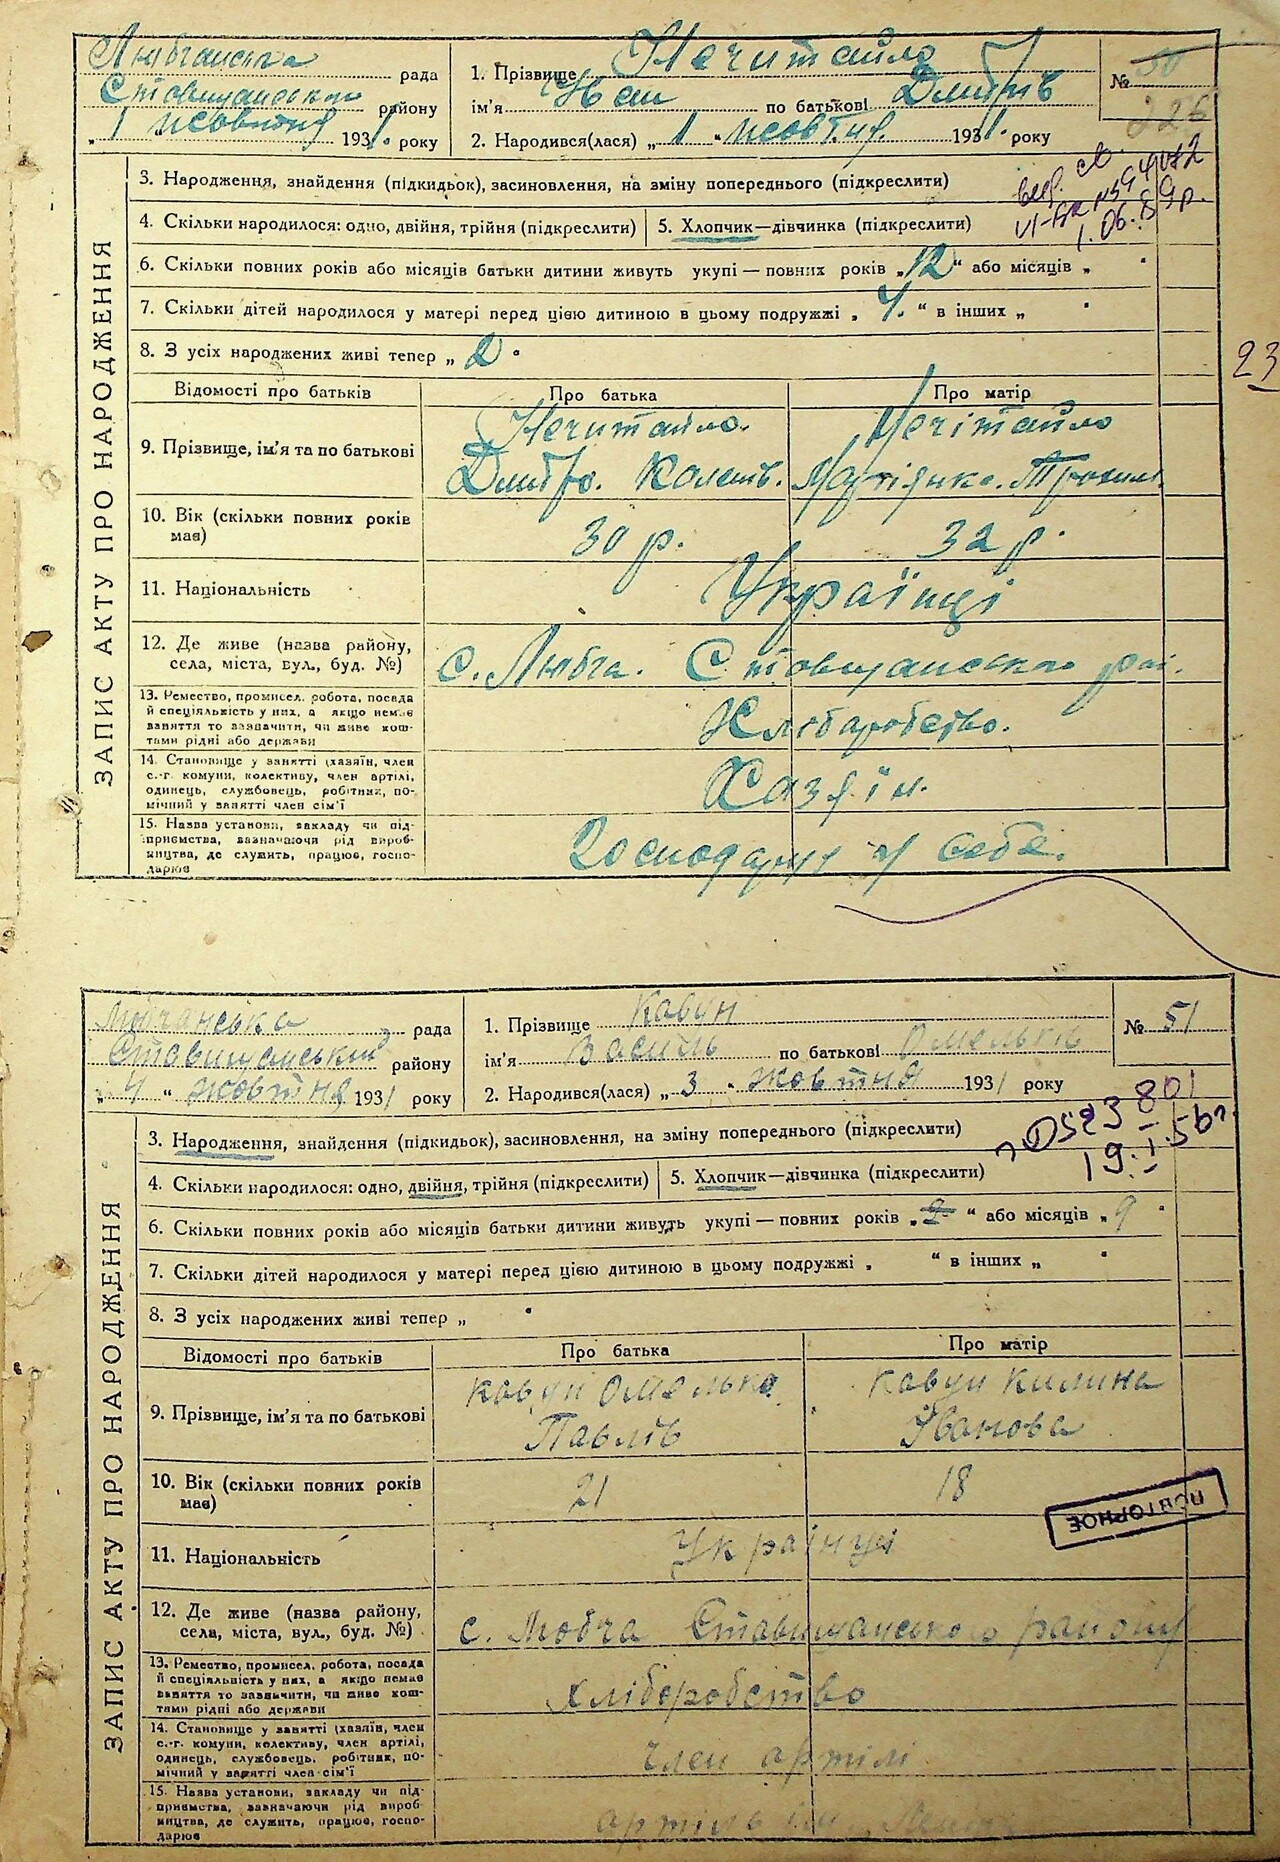 рада
району
1 жовтня 1931 року
1. Прізвище Нечитайло
ім'я Іван по батькові Дмитрів
2. Народився(лася) „ 1 “ жовтня 1931 року
№ 50
226
3. Народження, знайдення (підкидьок), засиновлення, на зміну попереднього (підкреслити)
4. Скільки народилося: одно, двійня, трійня (підкреслити)
5. Хлопчик—дівчинка (підкреслити)
1.06.89р.
6. Скільки повних років або місяців батьки дитини живуть укупі — повних років „12“ або місяців „
7. Скільки дітей народилося у матері перед цією дитиною в цьому подружжі „ 4. “ в інших „
8. З усіх народжених живі тепер „ 2
23
ЗАПИС АКТУ ПРО НАРОДЖЕННЯ
Відомості про батьків
Про батька
Про матір
9. Прізвище, ім'я та по батькові
Нечитайло.
Дмитро.
Нечітайло
10. Вік (скільки повних років має)
30 р.
32 р.
11. Національність
Українці
12. Де живе (назва району, села, міста, вул., буд. №)
с. Любча. Ставищанського рай.
13. Ремество, промисел, робота, посада
й спеціяльність у них, а якщо немає
заняття то зазначити, чи живе кош-
тами рідні або держави
Хліборобство.
14. Становище у занятті (хазяїн, член
с.-г. комуни, колективу, член артілі,
одинець, службовець, робітник, по-
мічний у занятті член сім'ї
Хазяїн.
15. Назва установи, закладу чи під-
приємства, зазначаючи рід вироб-
ництва, де служить, працює, госпо-
дарює
Господарує у себе.
Любчанська рада
Ставищанський району
„ 4 “ жовтня 1931 року
1. Прізвище Кавун
ім'я Василь по батькові Омельків
2. Народився(лася) „ 3 “ жовтня 1931 року
№ 51
3. Народження, знайдення (підкидьок), засиновлення, на зміну попереднього (підкреслити)
4. Скільки народилося: одно, двійня, трійня (підкреслити)
5. Хлопчик—дівчинка (підкреслити)
19.I.56г.
6. Скільки повних років або місяців батьки дитини живуть укупі — повних років „ 2 “ або місяців „ 9
7. Скільки дітей народилося у матері перед цією дитиною в цьому подружжі „ “ в інших „
8. З усіх народжених живі тепер „
ЗАПИС АКТУ ПРО НАРОДЖЕННЯ
Відомості про батьків
Про батька
Про матір
9. Прізвище, ім'я та по батькові
Кавун Омелько
Павлів
Кавун Килина
Іванова
10. Вік (скільки повних років має)
21
18
ПОВТОРНОЕ
11. Національність
Українці
12. Де живе (назва району, села, міста, вул., буд. №)
с. Любча Ставищанського району
13. Ремество, промисел, робота, посада
й спеціяльність у них, а якщо немає
заняття то зазначити, чи живе кош-
тами рідні або держави
хліборобство
14. Становище у занятті (хазяїн, член
с.-г. комуни, колективу, член артілі,
одинець, службовець, робітник, по-
мічний у занятті член сім'ї
член артілі
15. Назва установи, закладу чи під-
приємства, зазначаючи рід вироб-
ництва, де служить, працює, госпо-
дарює
артіль ім.